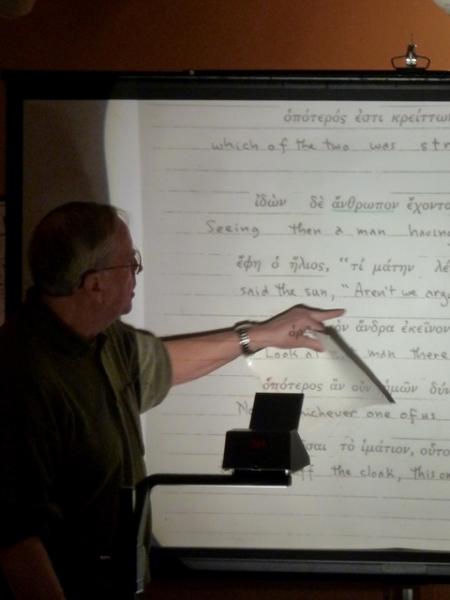 ὁπότερός ἐστι κρείττων
which of the two was str
ἰδὼν δὲ ἄνθρωπον ἔχοντα
Seeing then a man having
ἔφη ὁ ἥλιος, “τί μάτην λέ
said the sun, "Aren't we argu
ἄνδρα ἐκεῖνον
Look at man there
ὁπότερος ἂν οὖν ἡμῶν δύν
whichever one of us
τὸ ἱμάτιον, οὗτο
the cloak, this on